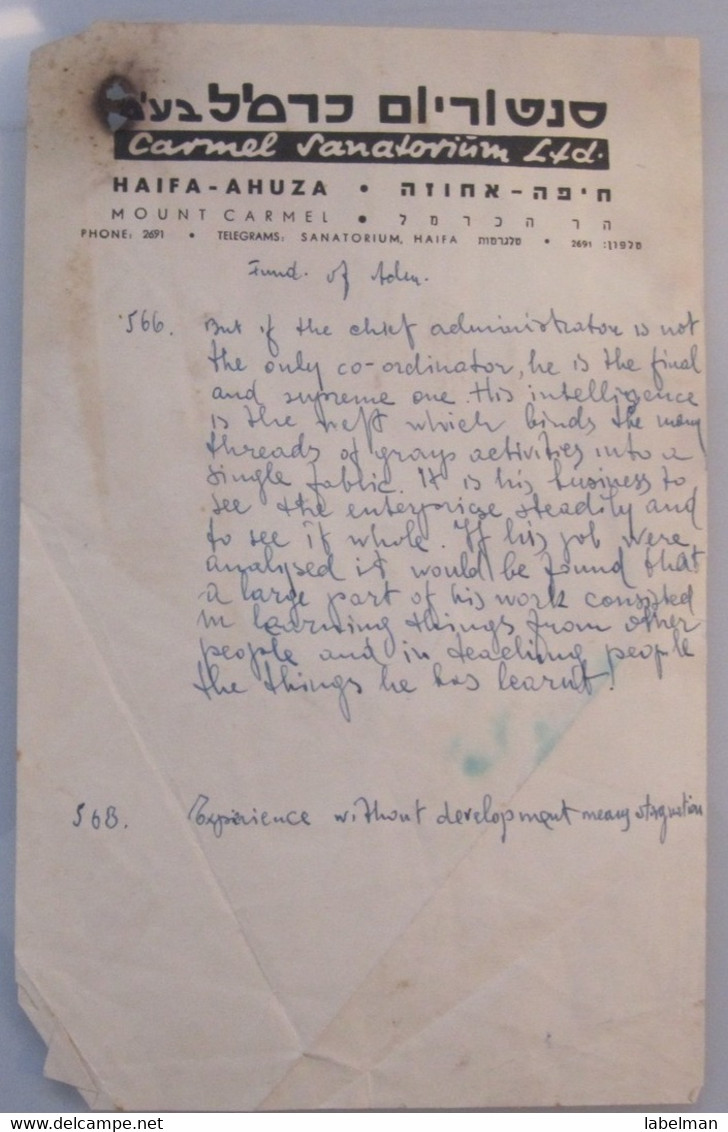 סנטוריום כרמל בע"מ
Carmel Sanatorium Ltd.
HAIFA-AHUZA • חיפה-אחוזה
MOUNT CARMEL • הר הכרמל
PHONE: 2691 • TELEGRAMS: SANATORIUM, HAIFA טלגרמות • טלפון: 2691
Fund. of Adm.
566. But if the chief administrator is not
the only co-ordinator, he is the final
and supreme one. His intelligence
is the weft which binds the many
threads of group activities into a
single fabric. It is his business to
see the enterprise steadily and
to see it whole. If his job were
analysed it would be found that
a large part of his work consisted
in learning things from other
people and in teaching people
the things he has learnt.
568. Experience without development means stagnation
www.delcampe.net
labelman